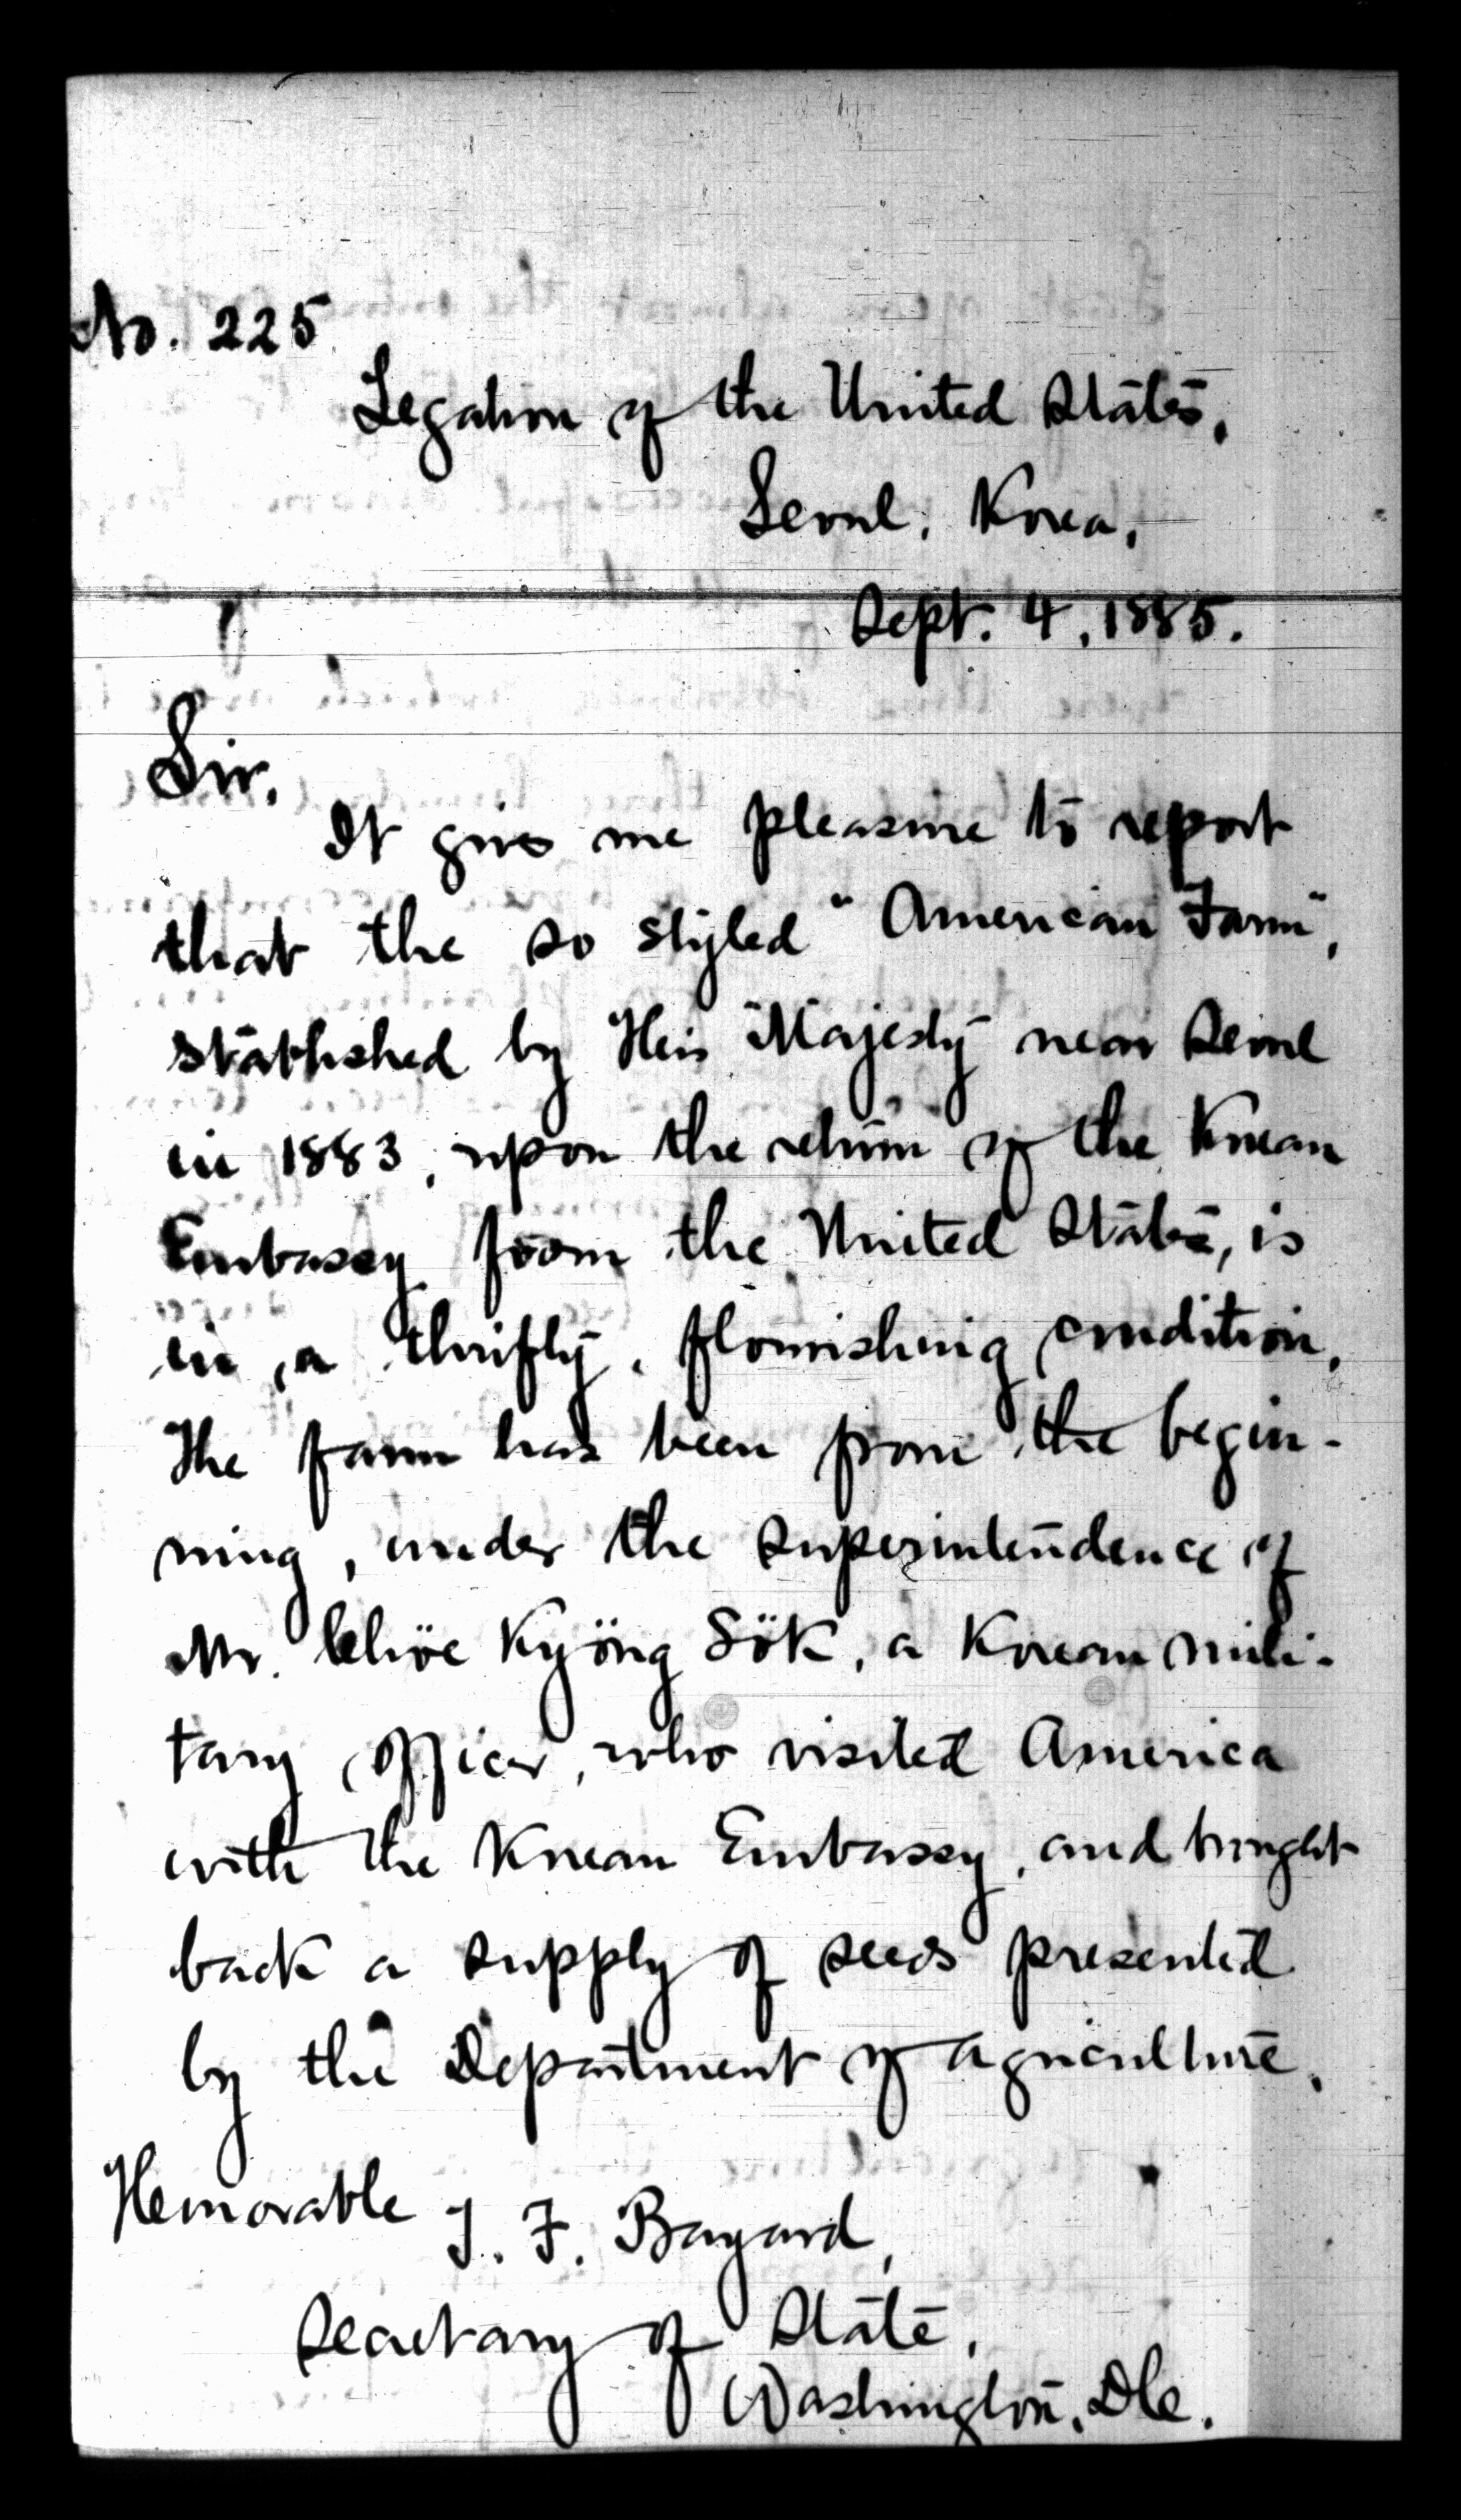 No. 225
Legation of the United States,
Seoul, Korea,
Sept. 4, 1885.
Sir,
It gives me pleasure to report
that the so styled "American Farm",
stablished by His Majesty near Seoul
in 1883, upon the return of the Korean
Embassy from the United States, is
in a thrifty, flourishing condition.
The farm has been from the begin-
ning, under the superintendence of
Mr. Chöe Kyöng Sök, a Korean mili-
tary officer, who visited America
with the Korean Embassy, and brought
back a supply of seeds presented
by the Department of Agriculture.
Honorable T. F. Bayard,
Secretary of State,
Washington, DC.